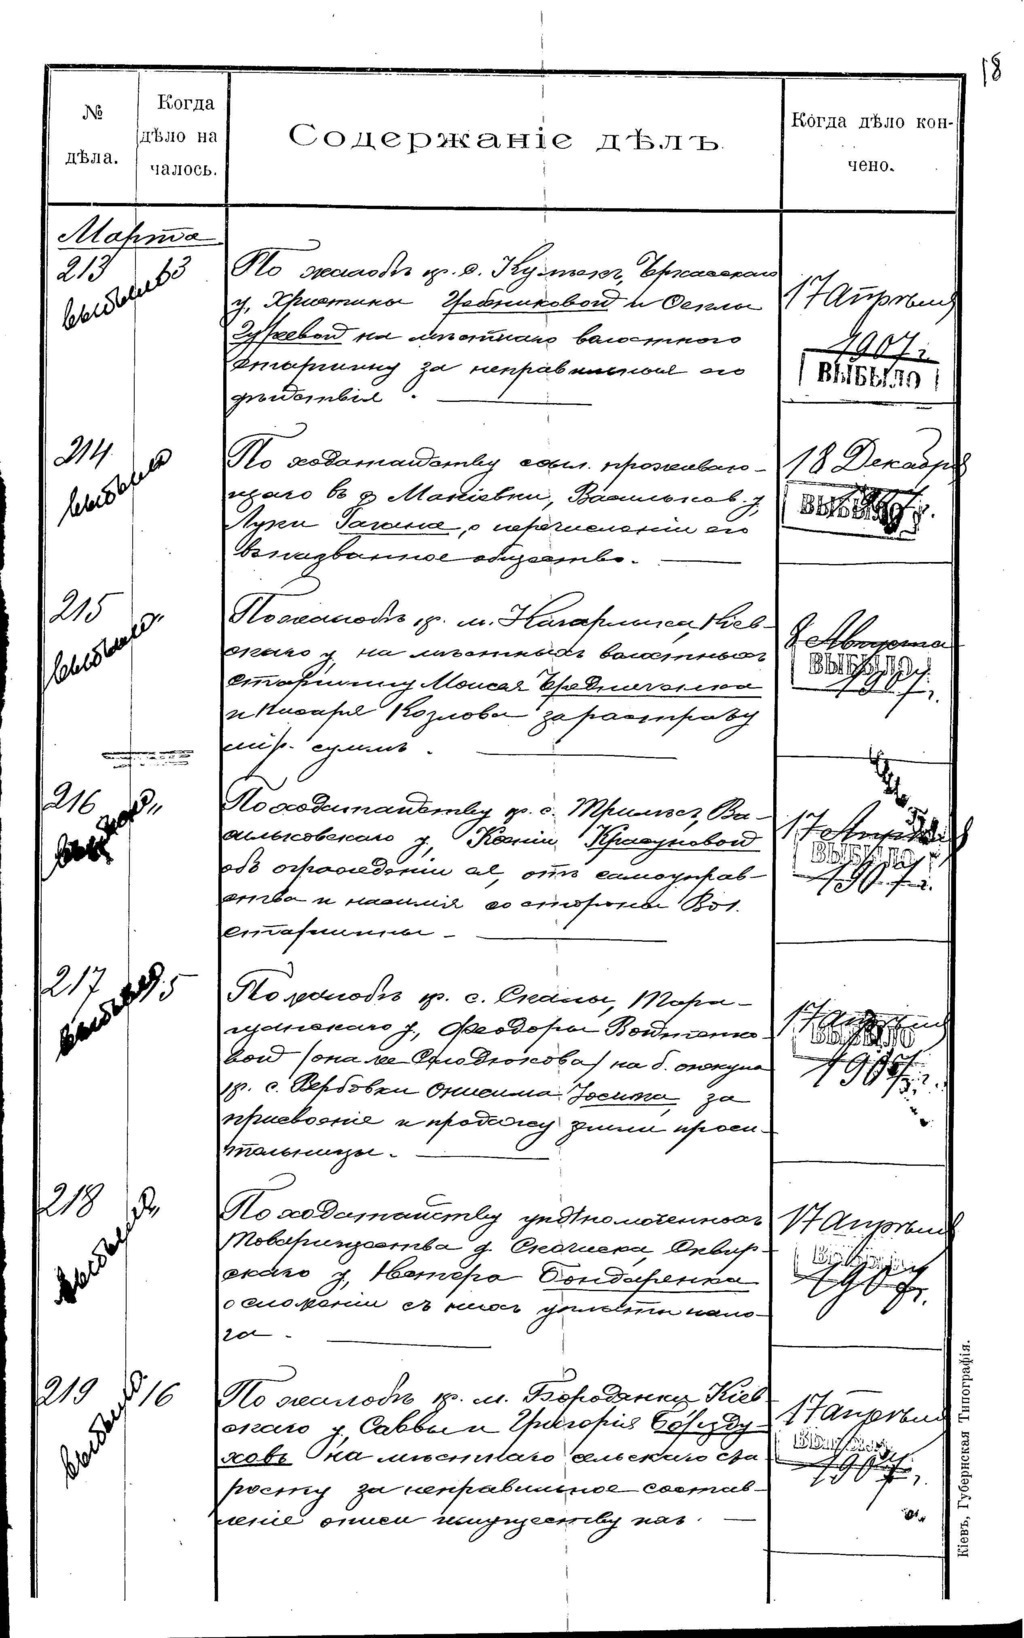 18
№ дѣла.
Когда дѣло началось.
Содержаніе дѣлъ.
Когда дѣло кончено.
Марта
213 выбыло 13
По жалобѣ кр. с.
у, Христины и Феклы
на мѣстнаго волостного
старшину за неправильныя его
дѣйствія.
17 Апрѣля
1907 г.
ВЫБЫЛО
214 выбыло
По ходатайству проживаю-
щаго въ д. Макіевки, Васильков. у,
Луки Гагана, о перечисленіи его
въ названное общество.
18 Декабря
1907 г.
ВЫБЫЛО
215 выбыло „
По жалобѣ кр. м. Кагарлыка, Кіев-
скаго у, на мѣстныхъ волостныхъ
старшину Моисея Чередниченка
и писаря Козлова за растрату
мір. суммъ.
8 Августа
ВЫБЫЛО
1907 г.
216 „
По ходатайству кр. с. Трилѣсъ, Ва-
сильковскаго у, Ксеніи Красуновой
объ огражденіи ея, отъ самоуправ-
ства и насилія со стороны Вол.
старшины
17 Апрѣля
ВЫБЫЛО
1907 г.
217 выбыло 15
По жалобѣ кр. с. Скалы, Тара-
щанскаго у, Феодоры Войтенко-
вой (она же Смодюкова) на б. опекуна
кр. с. Вербовки Онисима за
присвоеніе и продажу земли проси-
тельницы.
17 Апрѣля
ВЫБЫЛО
1907 г.
218 выбыло „
По ходатайству уполномоченныхъ
Товарищества д. Сквир-
скаго у, Нестера Бондаренка
о сложеніи съ нихъ уплаты нало-
га
17 Апрѣля
ВЫБЫЛО
1907 г.
219 выбыло 16
По жалобѣ кр. м. Бородянки Кіев
скаго у Саввы и Григорія Борзду-
ховъ на мѣстнаго сельскаго ста
росту за неправильное состав-
леніе описи имуществу ихъ.
17 Апрѣля
ВЫБЫЛО
1907 г.
Кіевъ, Губернская Типографія.